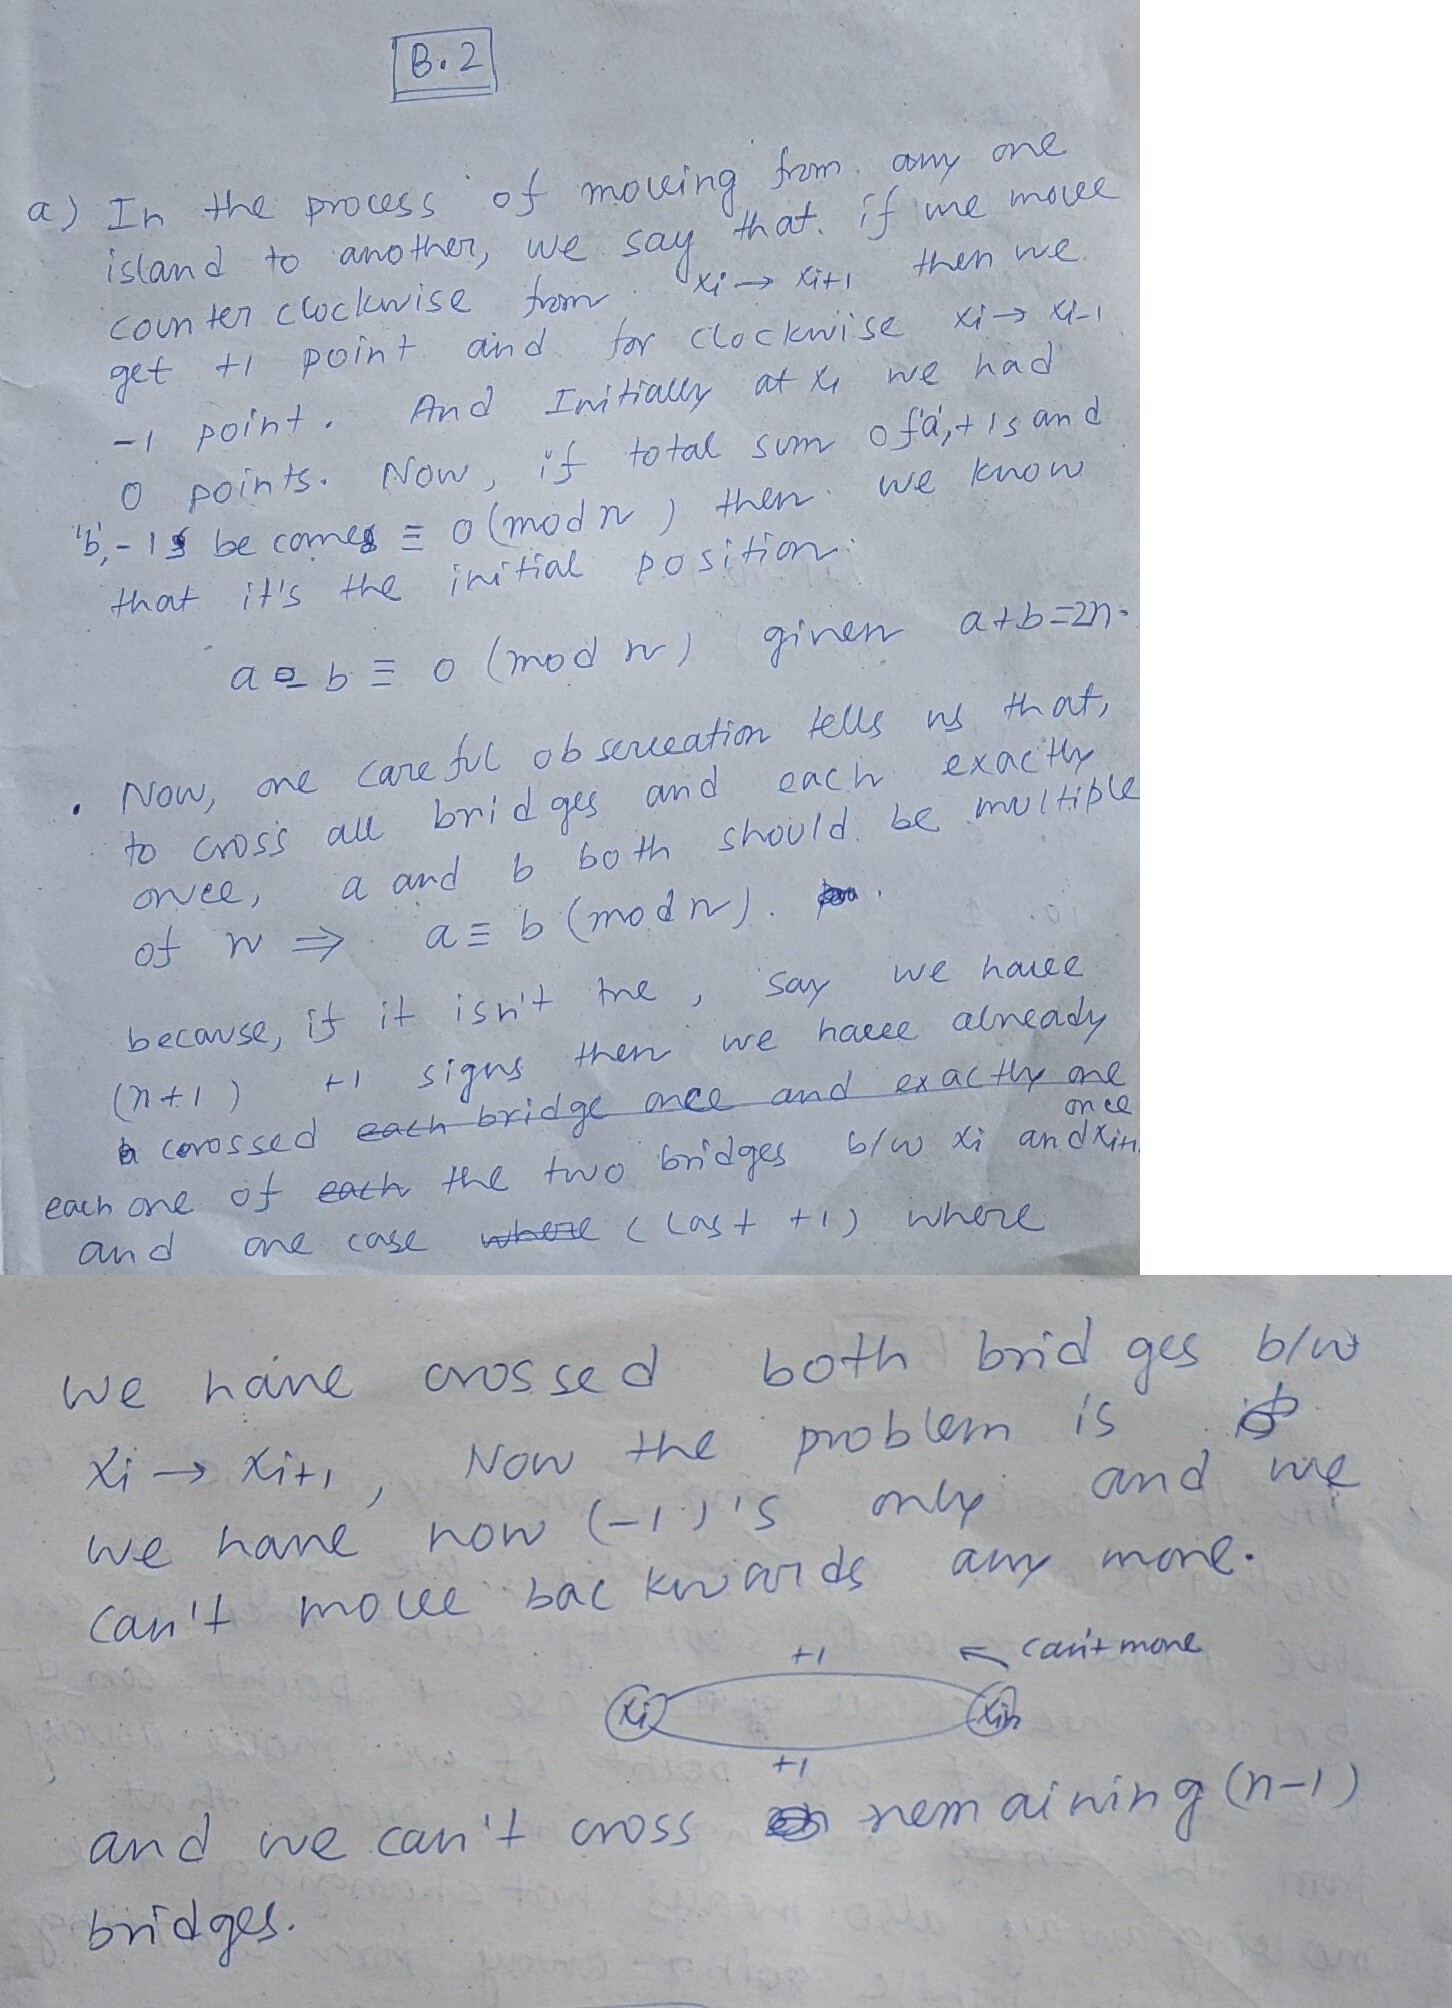 B.2
a) In the process of moving from any one
island to another, we say that if we move
counter clockwise from xi → xi+1 then we
get +1 point and for clockwise xi → xi-1
-1 point. And Initially at x1 we had
0 points. Now, if total sum of 'a', +1s and
'b', -1s becomes ≡ 0 (mod n) then we know
that it's the initial position.
a - b ≡ 0 (mod n) given a+b=2n.
. Now, one careful observation tells us that,
to cross all bridges and each exactly
once, a and b both should be multiple
of n ⇒ a ≡ b (mod n).
because, if it isn't true, say we have
(n+1) +1 signs then we have already
crossed each bridge once and exactly one
each one of each the two bridges b/w xi and xi+1 once
and one case where (last +1) where
we have crossed both bridges b/w
xi → xi+1, Now the problem is
we have now (-1)'s only and we
can't move backwards any more.
+1 ← can't move
xi xi+1
+1
and we can't cross remaining (n-1)
bridges.